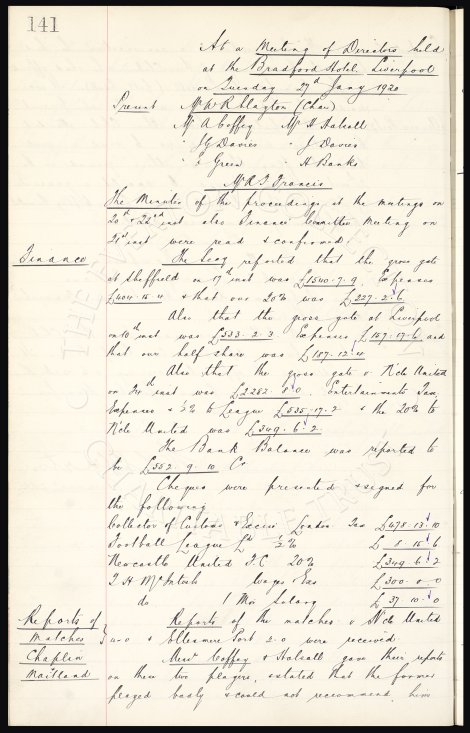 141
At a Meeting of Directors held
at the Bradford Hotel. Liverpool
on Tuesday 27th Jany 1920
Present Mr W R Clayton (Chair)
Mr A Coffey Mr H Halsall
" J G Davies " J Davies
" E Green " A Banks
Mr R I Francis
The Minutes of the proceedings at the meetings on
20th & 22nd inst also Finance Committee Meeting on
21st inst were read & confirmed.
Finance The Secy reported that the gross gate
at Sheffield on 17th inst was £1540.7.9. Expenses
£404.15.4 & that our 20% was £227.2.6
Also that the gross gate at Liverpool
on inst was £533.2.3 Expenses £157.17.6 and
that our half share was £187.12.4
Also that the gross gate v N'cle United
on inst was £2282.8.0. Entertainments Tax,
Expenses & ½% to League £535.17.2 & the 20% to
N'cle United was £349.6.2
The Bank Balance was reported to
be £552.9.10 Cr
Cheques were presented & signed for
the following
Collector of Customs & Excise London Tax £478.13.10
Football League Ld ½% £8.15.6
Newcastle United F.C 20% £349.6.2
T H McIntosh Wages &as £300.0.0
do 1 Mos Salary £37.10.0
Reports of Reports of the matches v N'cle United
Matches and v Ellesmere Port 2-0 were received
Chaplin Messrs Coffey & Halsall gave their reports
Maitland on these two players, & stated that the former
played badly & could not recommend him